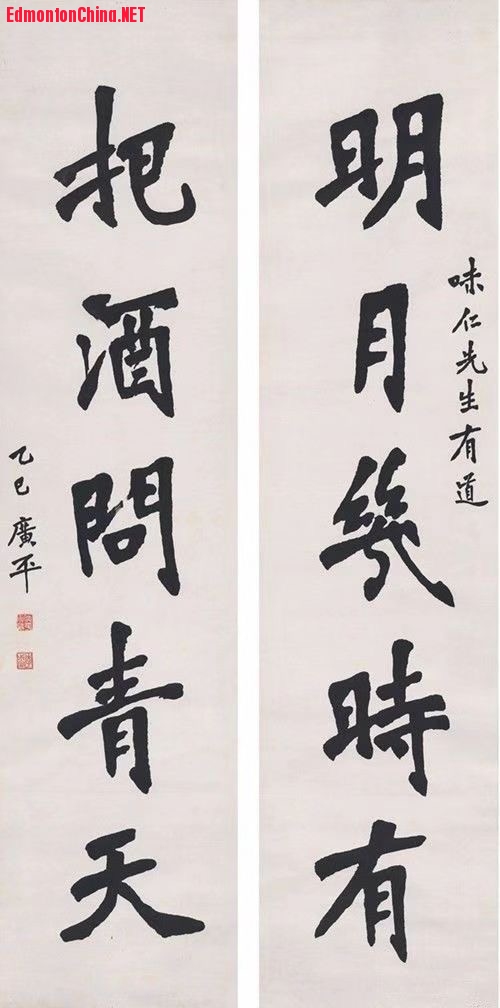 EdmontonChina.NET
味仁先生有道
明月幾時有
把酒問青天
乙巳 廣平